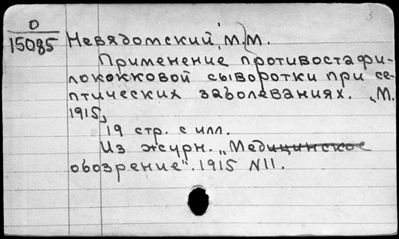 О
15085 Невядомский, М.М.
Применение противостафи-
лококковой сыворотки при се-
птических заболеваниях. „М.
1915,
19 стр. с илл.
Из журн. „Медицинское
обозрение". 1915 N11.